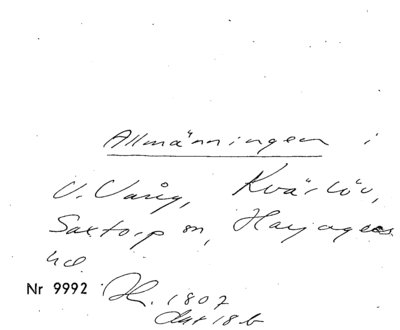 Allmänningen i
V. Varig, Kvärlöv,
Saxtorp sn, Harjagers
hd.
Nr 9992 H. 1807
akt 18 b